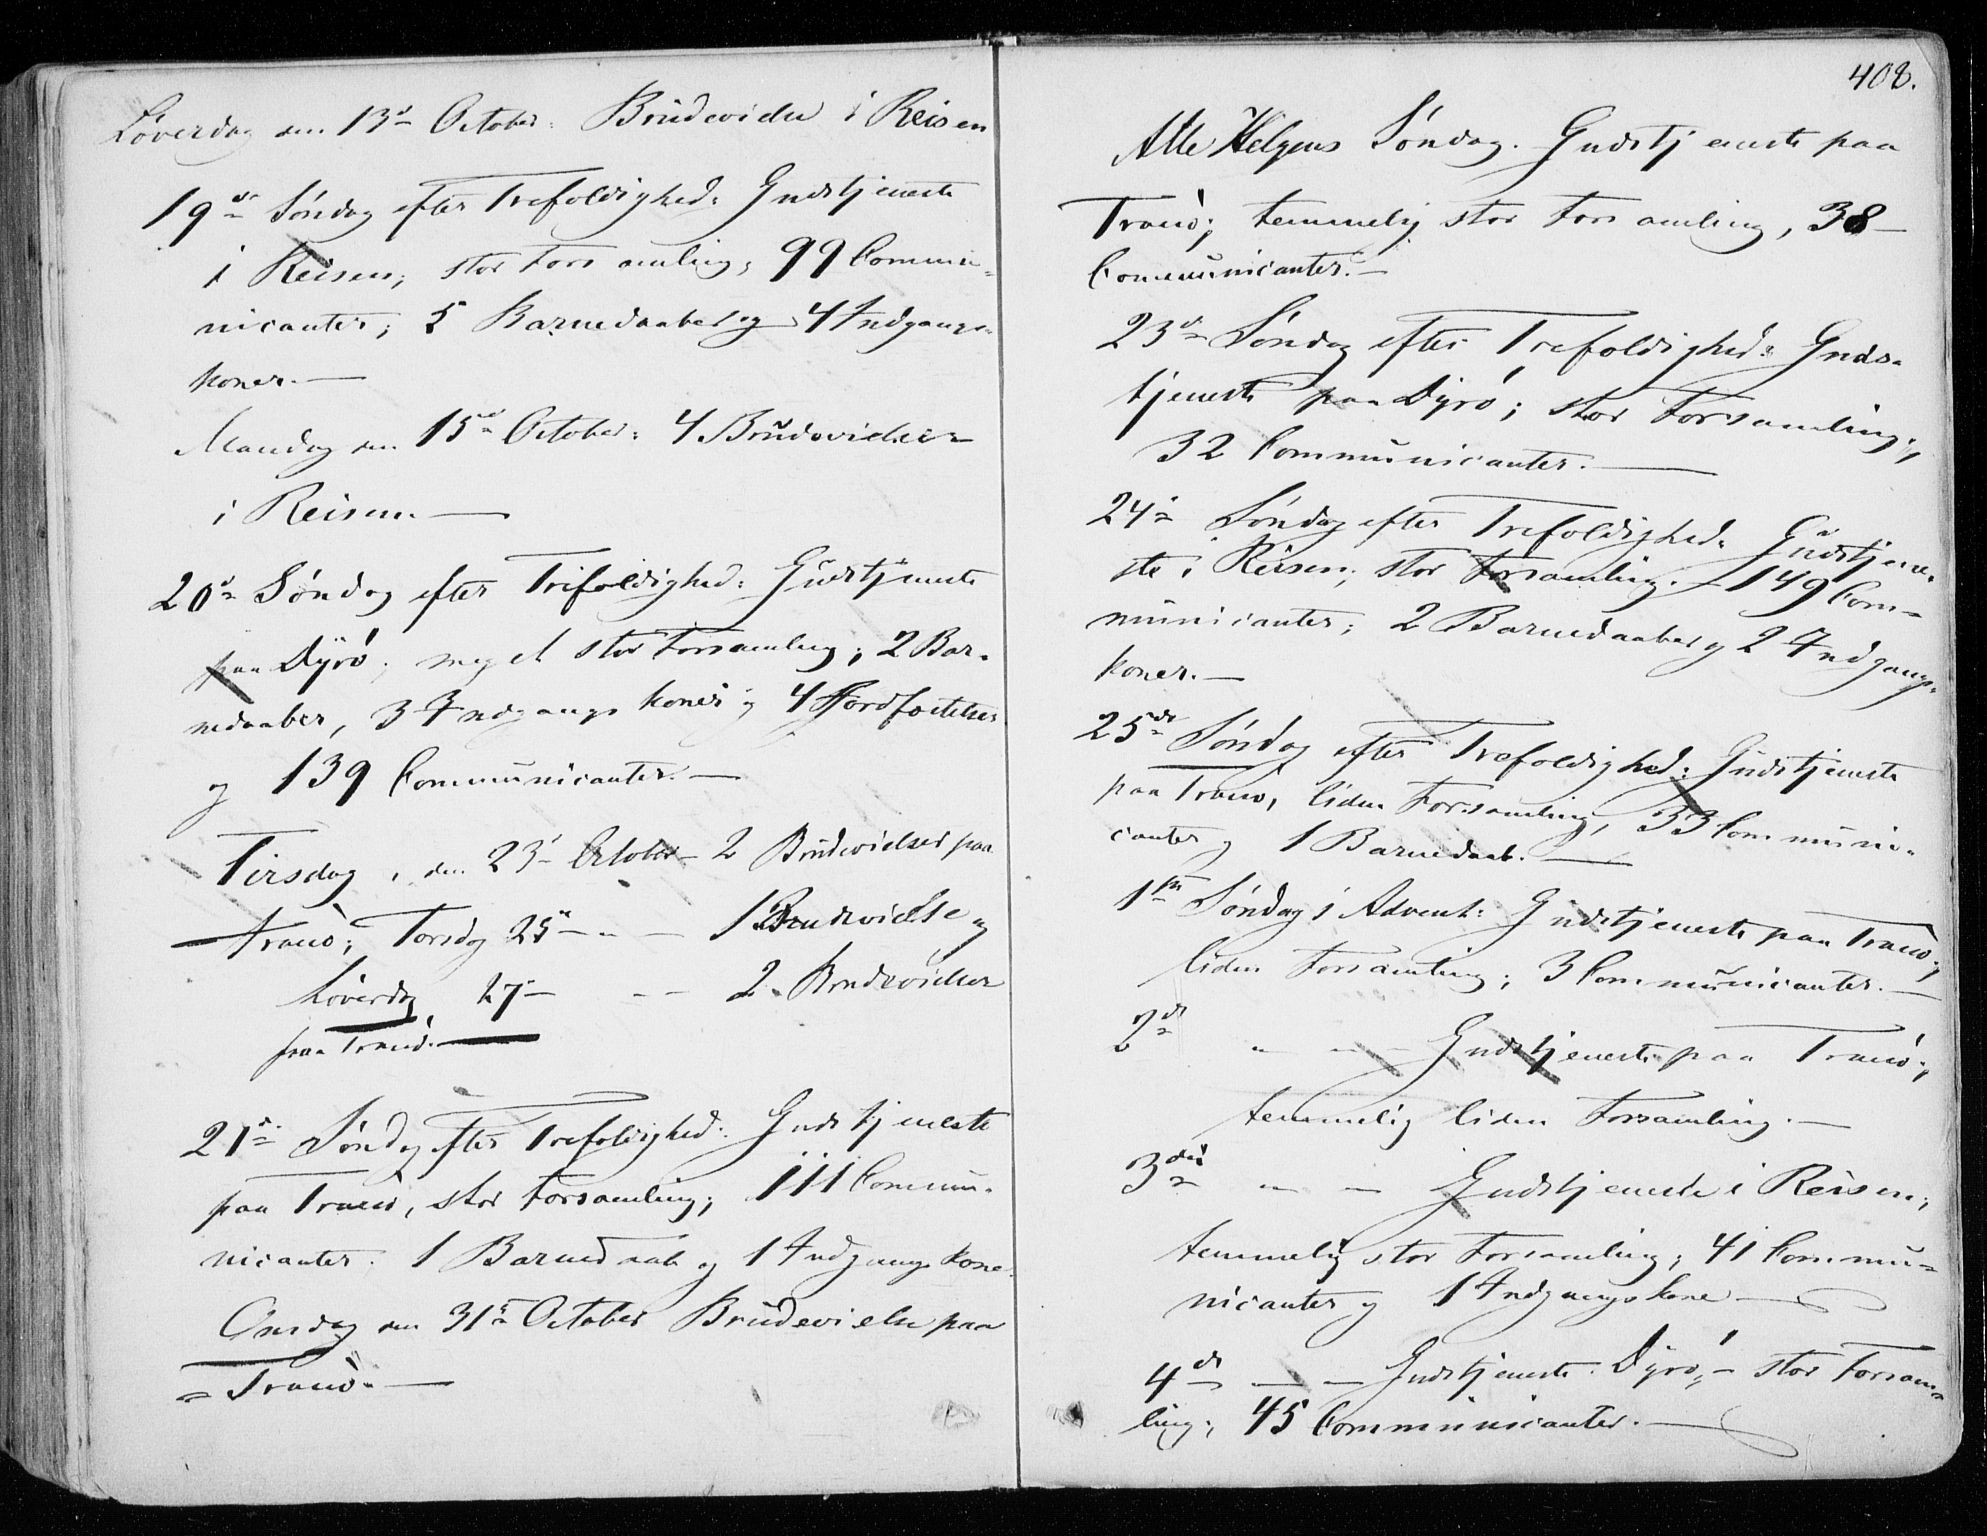 Løverdag den 13de October: Brudevielse i Reisen
19de Søndag efter Trefoldighed: Gudstjeneste
i Reisen; stor Forsamling; 99 Commu-
nicanter; 5 Barnedaaber og 4 Indgangs-
koner.—
Mandag den 15de October: 4 Brudevielser
i Reisen.—
20de Søndag efter Trefoldighed: Gudstjeneste
paa Dyrö; meget stor Forsamling; 2 Bar-
nedaaber, 3 Indgangskoner; 4 Jordfæstelser
og 139 Communicanter.—
Tirsdag, den 23de October 2 Brudevielser paa
Tranö; Torsdag 25de - " - 1 Brudevielse og
Løverdag 27de - - - 2 Brudevielser
paa Tranö.—
21de Søndag efter Trefoldighed: Gudstjeneste
paa Tranö, stor Forsamling; 111 Commu-
nicanter. 1 Barnedaab og 1 Indgangskone.
Onsdag den 31te October Brudevielse paa
= Tranö.—
408.
Alle Helgens Søndag. Gudstjeneste paa
Tranö; temmelig stor Forsamling, 38
Communicanter.—
23de Søndag efter Trefoldighed: Guds-
tjeneste paa Dyrö; stor Forsamling;
32 Communicanter.—
24de Søndag efter Trefoldighed: Gudstjene-
ste i Reisen; stor Forsamling. 149 Com-
municanter; 2 Barnedaaber og 2 Indgangs-
koner.—
25de Søndag efter Trefoldighed: Gudstjeneste
paa Tranö, liden Forsamling, 33 Communi-
canter og 1 Barnedaab.—
1ste Søndag i Advent: Gudstjeneste paa Tranö;
liden Forsamling; 3 Communicanter.—
2de " - " - Gudstjeneste paa Tranö;
temmelig liden Forsamling.—
3die - " - Gudstjeneste i Reisen;
temmelig stor Forsamling; 41 Commu-
nicanter og 1 Indgangskone—
4de — — Gudstjeneste: Dyrö; - stor Forsam-
ling; 45 Communicanter.—